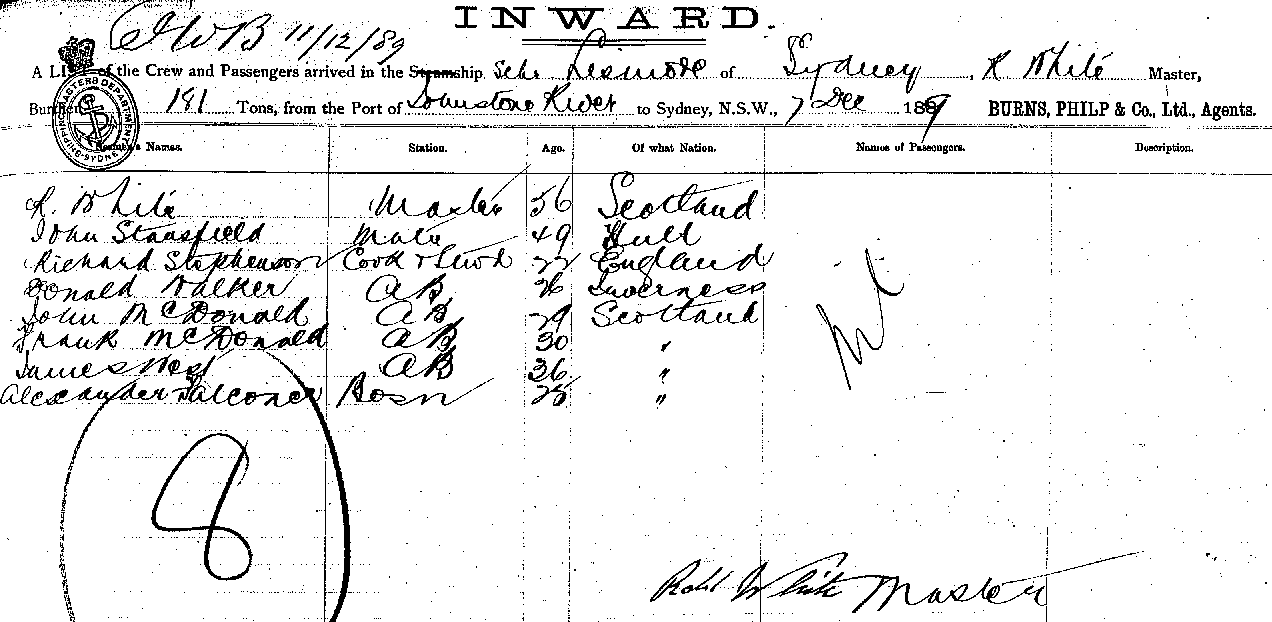 INWARD.
JWB 11/12/89
A LIST of the Crew and Passengers arrived in the Steamship Schr Lismore of Sydney, R White Master,
Burthen 181 Tons, from the Port of Johnstone River to Sydney, N.S.W., 7 Dec 1889 BURNS, PHILP & Co., Ltd., Agents.
Names. Station. Age. Of what Nation. Names of Passengers. Description.
R. White Master 56 Scotland
John Stansfield Mate 49 Hull
Richard Stephenson Cook & Stwd 22 England
Donald Walker AB 26 Inverness
John McDonald AB 29 Scotland
Frank McDonald AB 30 "
James West AB 36 "
Alexander Falconer Bosn 25 "
Nil
8
Robt White Master